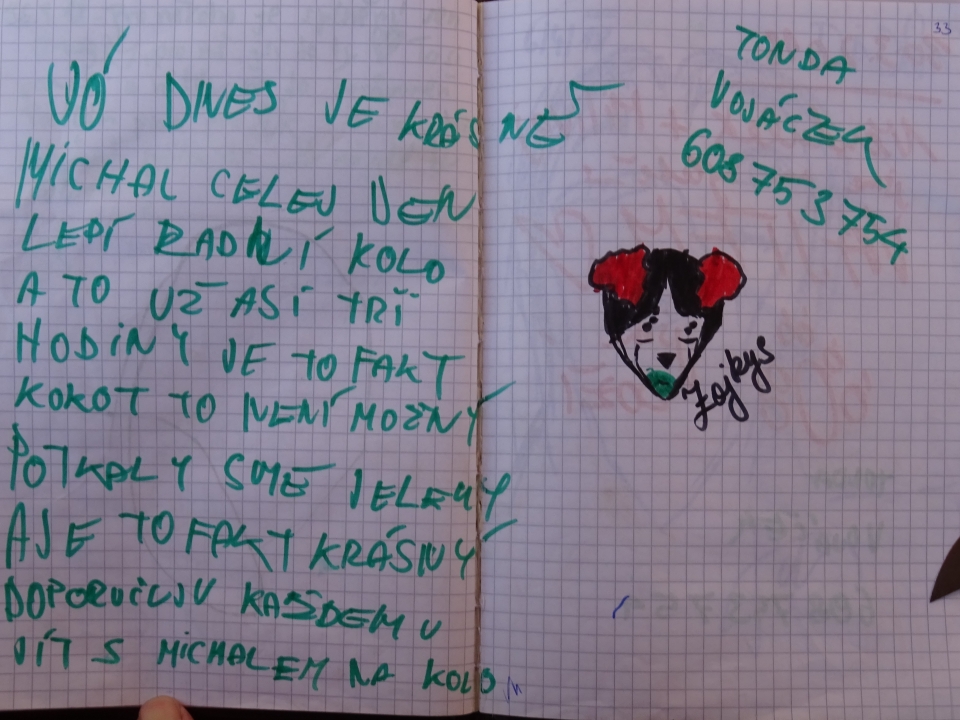 VÓ DNES JE KRÁSNĚ
MICHAL CELEJ DEN
LEPÍ ZADNÍ KOLO
A TO UŽ ASI TŘI
HODINY JE TO FAKT
KOKOT TO NENÍ MOŽNÝ
POTKALY SME JELENY
A JE TO FAKT KRÁSNÝ
DOPORUČUJU KAŽDEMU
JÍT S MICHALEM NA KOLO
33
TONDA
VOJÁČEK
608 753 754